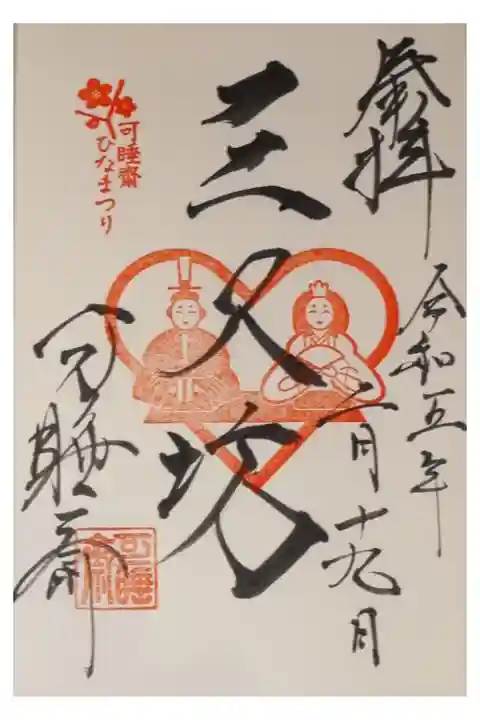 奉拝
令和五年
二月十九日
三尺坊
可睡齋
ひなまつり
可睡齋
可睡齋